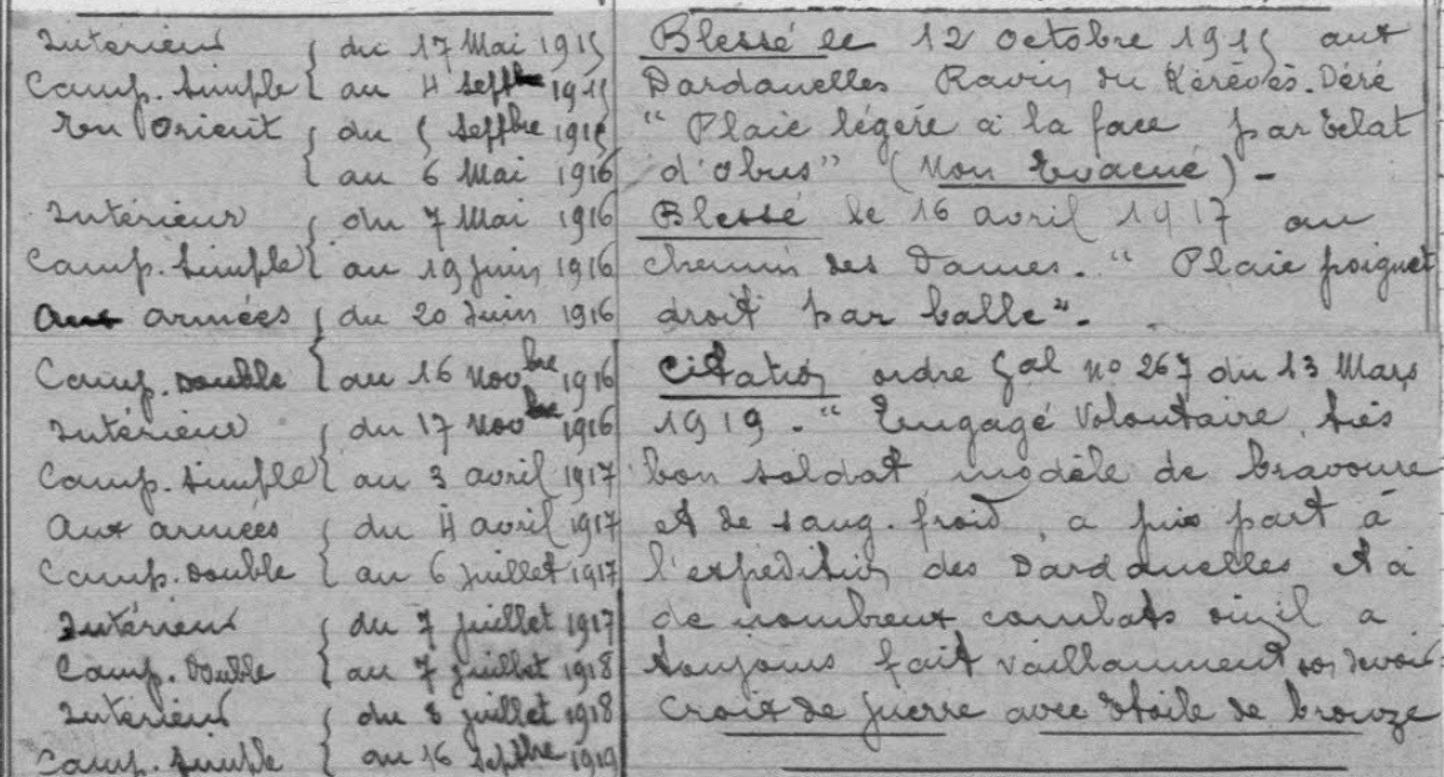 Intérieur { du 17 Mai 1915
Camp. Simple { au 4 Sept^bre 1915
En Orient { du 5 Seppbre 1915
{ au 6 Mai 1916
Intérieur { du 7 Mai 1916
Camp. Simple { au 19 Juin 1916
Aux armées { du 20 Juin 1916
Camp. Double { au 16 Nov^bre 1916
Intérieur { du 17 Nov^bre 1916
Camp. Simple { au 3 avril 1917
Aux armées { du 4 avril 1917
Camp. Double { au 6 Juillet 1917
Intérieur { du 7 Juillet 1917
Camp. Double { au 7 Juillet 1918
Intérieur { du 8 Juillet 1918
Camp. Simple { au 16 Septbre 1919
Blessé le 12 Octobre 1915 aux
Dardanelles Ravin du Kérévès-Déré
“ Plaie légère à la face par Eclat
d'Obus” (Non Evacué) -
Blessé le 16 avril 1917 au
Chemin des Dames. “ Plaie poignet
droit par balle”.
Citation ordre Gal No 267 du 13 Mars
1919. “ Engagé Volontaire, très
bon soldat, modèle de bravoure
et de sang-froid, a pris part à
l'expédition des Dardanelles et à
de nombreux combats où il a
toujours fait vaillamment son devoir
Croix de guerre avec Etoile de bronze